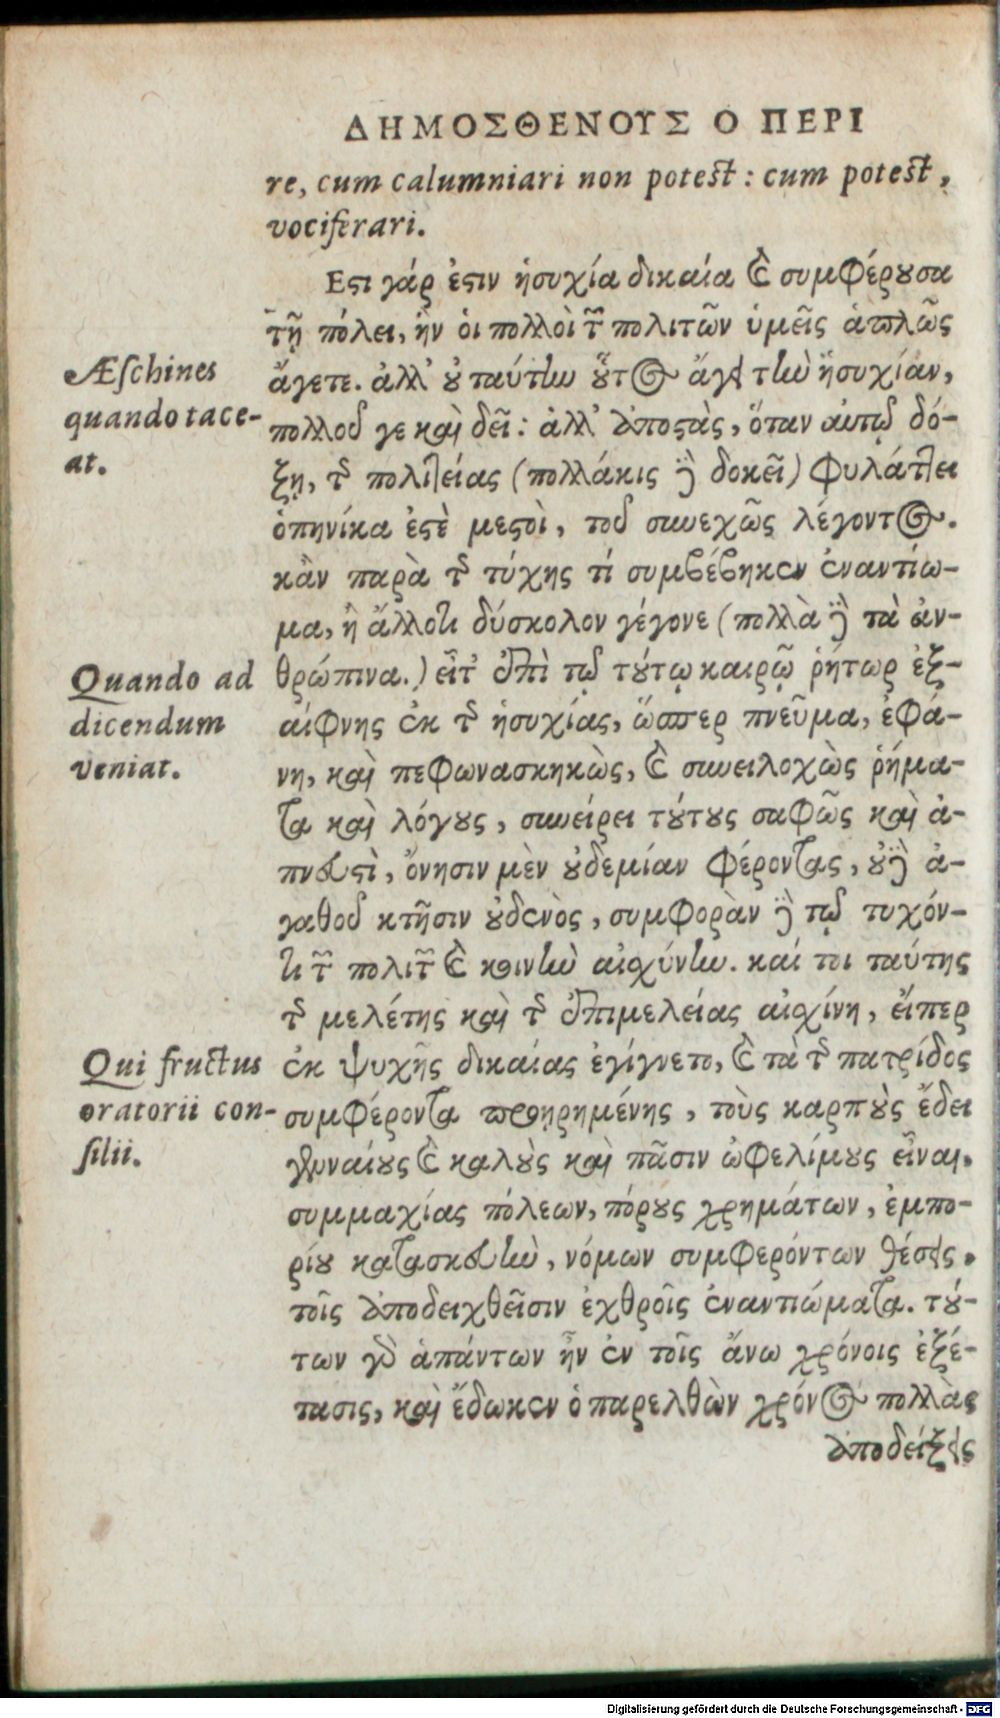 ΔΗΜΟΣΘΕΝΟΥΣ Ο ΠΕΡΙ
re, cum calumniari non potest: cum potest,
vociferari.
Εςι γάρ ἐςιν ἡσυχία δικαία ϗ συμφέρȣσα
τῇ πόλει, ἣν ὁι πολλοὶ τῶν πολιτῶν ὑμεῖς ἁπλῶς
ἄγετε. ἀλλ' ȣ ταύτην ȣ̃τος ἄγει τὴν ἡσυχίαν,
πολλοῦ γε καὶ δεῖ: ἀλλ' ἀποςὰς, ὅταν αὐτῷ δό-
ξῃ, τῆς πολιτείας (πολλάκις δὲ δοκεῖ) φυλάττει
ὁπηνίκα ἐςὲ μεςοὶ, τοῦ συνεχῶς λέγοντος.
κἂν παρὰ τῆς τύχης τί συμβέβηκεν ἐναντίω-
μα, ἢ ἄλλοτι δύσκολον γέγονε (πολλὰ δὲ τὰ ἀν-
θρώπινα.) εἶτ' ἐπὶ τῷ τȣ́τῳ καιρῷ ῥήτωρ ἐξ-
αίφνης ἐκ τῆς ἡσυχίας, ὥσπερ πνεῦμα, ἐφά-
νη, καὶ πεφωνασκηκὼς, ϗ συνειλοχὼς ῥήμα-
τα καὶ λόγȣς, συνείρει τȣ́τȣς σαφῶς καὶ ἀ-
πνευςὶ, ὄνησιν μὲν ȣ̓δεμίαν φέροντας, ȣ̓δὲ ἀ-
γαθοῦ κτῆσιν ȣ̓δενὸς, συμφορὰν δὲ τῷ τυχόν-
τι τῶν πολιτῶν ϗ κοινὴν αἰσχύνην. καί τοι ταύτης
τῆς μελέτης καὶ τῆς ἐπιμελείας αἰσχίνη, εἴπερ
ἐκ ψυχῆς δικαίας ἐγίγνετο, ϗ τὰ τῆς πατρίδος
συμφέροντα προῃρημένης, τοὺς καρπȣ̀ς ἔδει
γενναίȣς ϗ καλȣ̀ς καὶ πᾶσιν ὠφελίμȣς εἶναι,
συμμαχίας πόλεων, πόρȣς χρημάτων, ἐμπο-
ρίȣ κατασκευὴν, νόμων συμφερόντων θέσεις,
τοῖς ἀποδειχθεῖσιν ἐχθροῖς ἐναντιώματα. τȣ́-
των γὰρ ἁπάντων ἦν ἐν τοῖς ἄνω χρόνοις ἐξέ-
τασις, καὶ ἔδωκεν ὁ παρελθὼν χρόνος πολλὰς
ἀποδείξεις
Æschines
quando tace-
at.
Quando ad
dicendum
veniat.
Qui fructus
oratorii con-
silii.
Digitalisierung gefördert durch die Deutsche Forschungsgemeinschaft - DFG